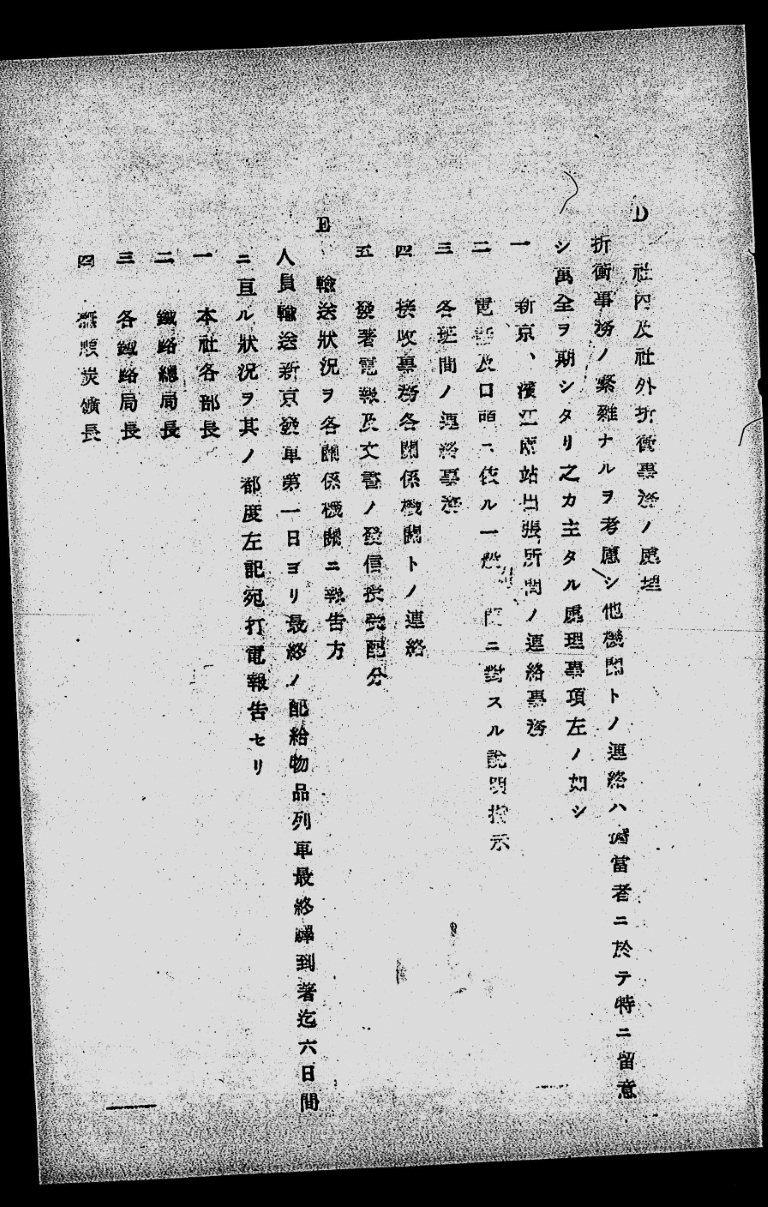 D 社內及社外折衝事務ノ處理
折衝事務ノ繁雜ナルヲ考慮シ他機關トノ連絡ハ擔當者ニ於テ特ニ留意
シ萬全ヲ期シタリ之カ主タル處理事項左ノ如シ
一 新京、濱江兩站出張所間ノ連絡事務
二 電話及口頭ニ依ル一般 ニ對スル說明指示
三 各班間ノ連絡事務
四 接收事務各關係機關トノ連絡
五 發著電報及文書ノ發信授受配分
E 輸送狀況ヲ各關係機關ニ報告方
人員輸送新京發車第一日ヨリ最終ノ配給物品列車最終驛到著迄六日間
ニ亘ル狀況ヲ其ノ都度左記宛打電報告セリ
一 本社各部長
二 鐵路總局長
三 各鐵路局長
四 撫順炭礦長